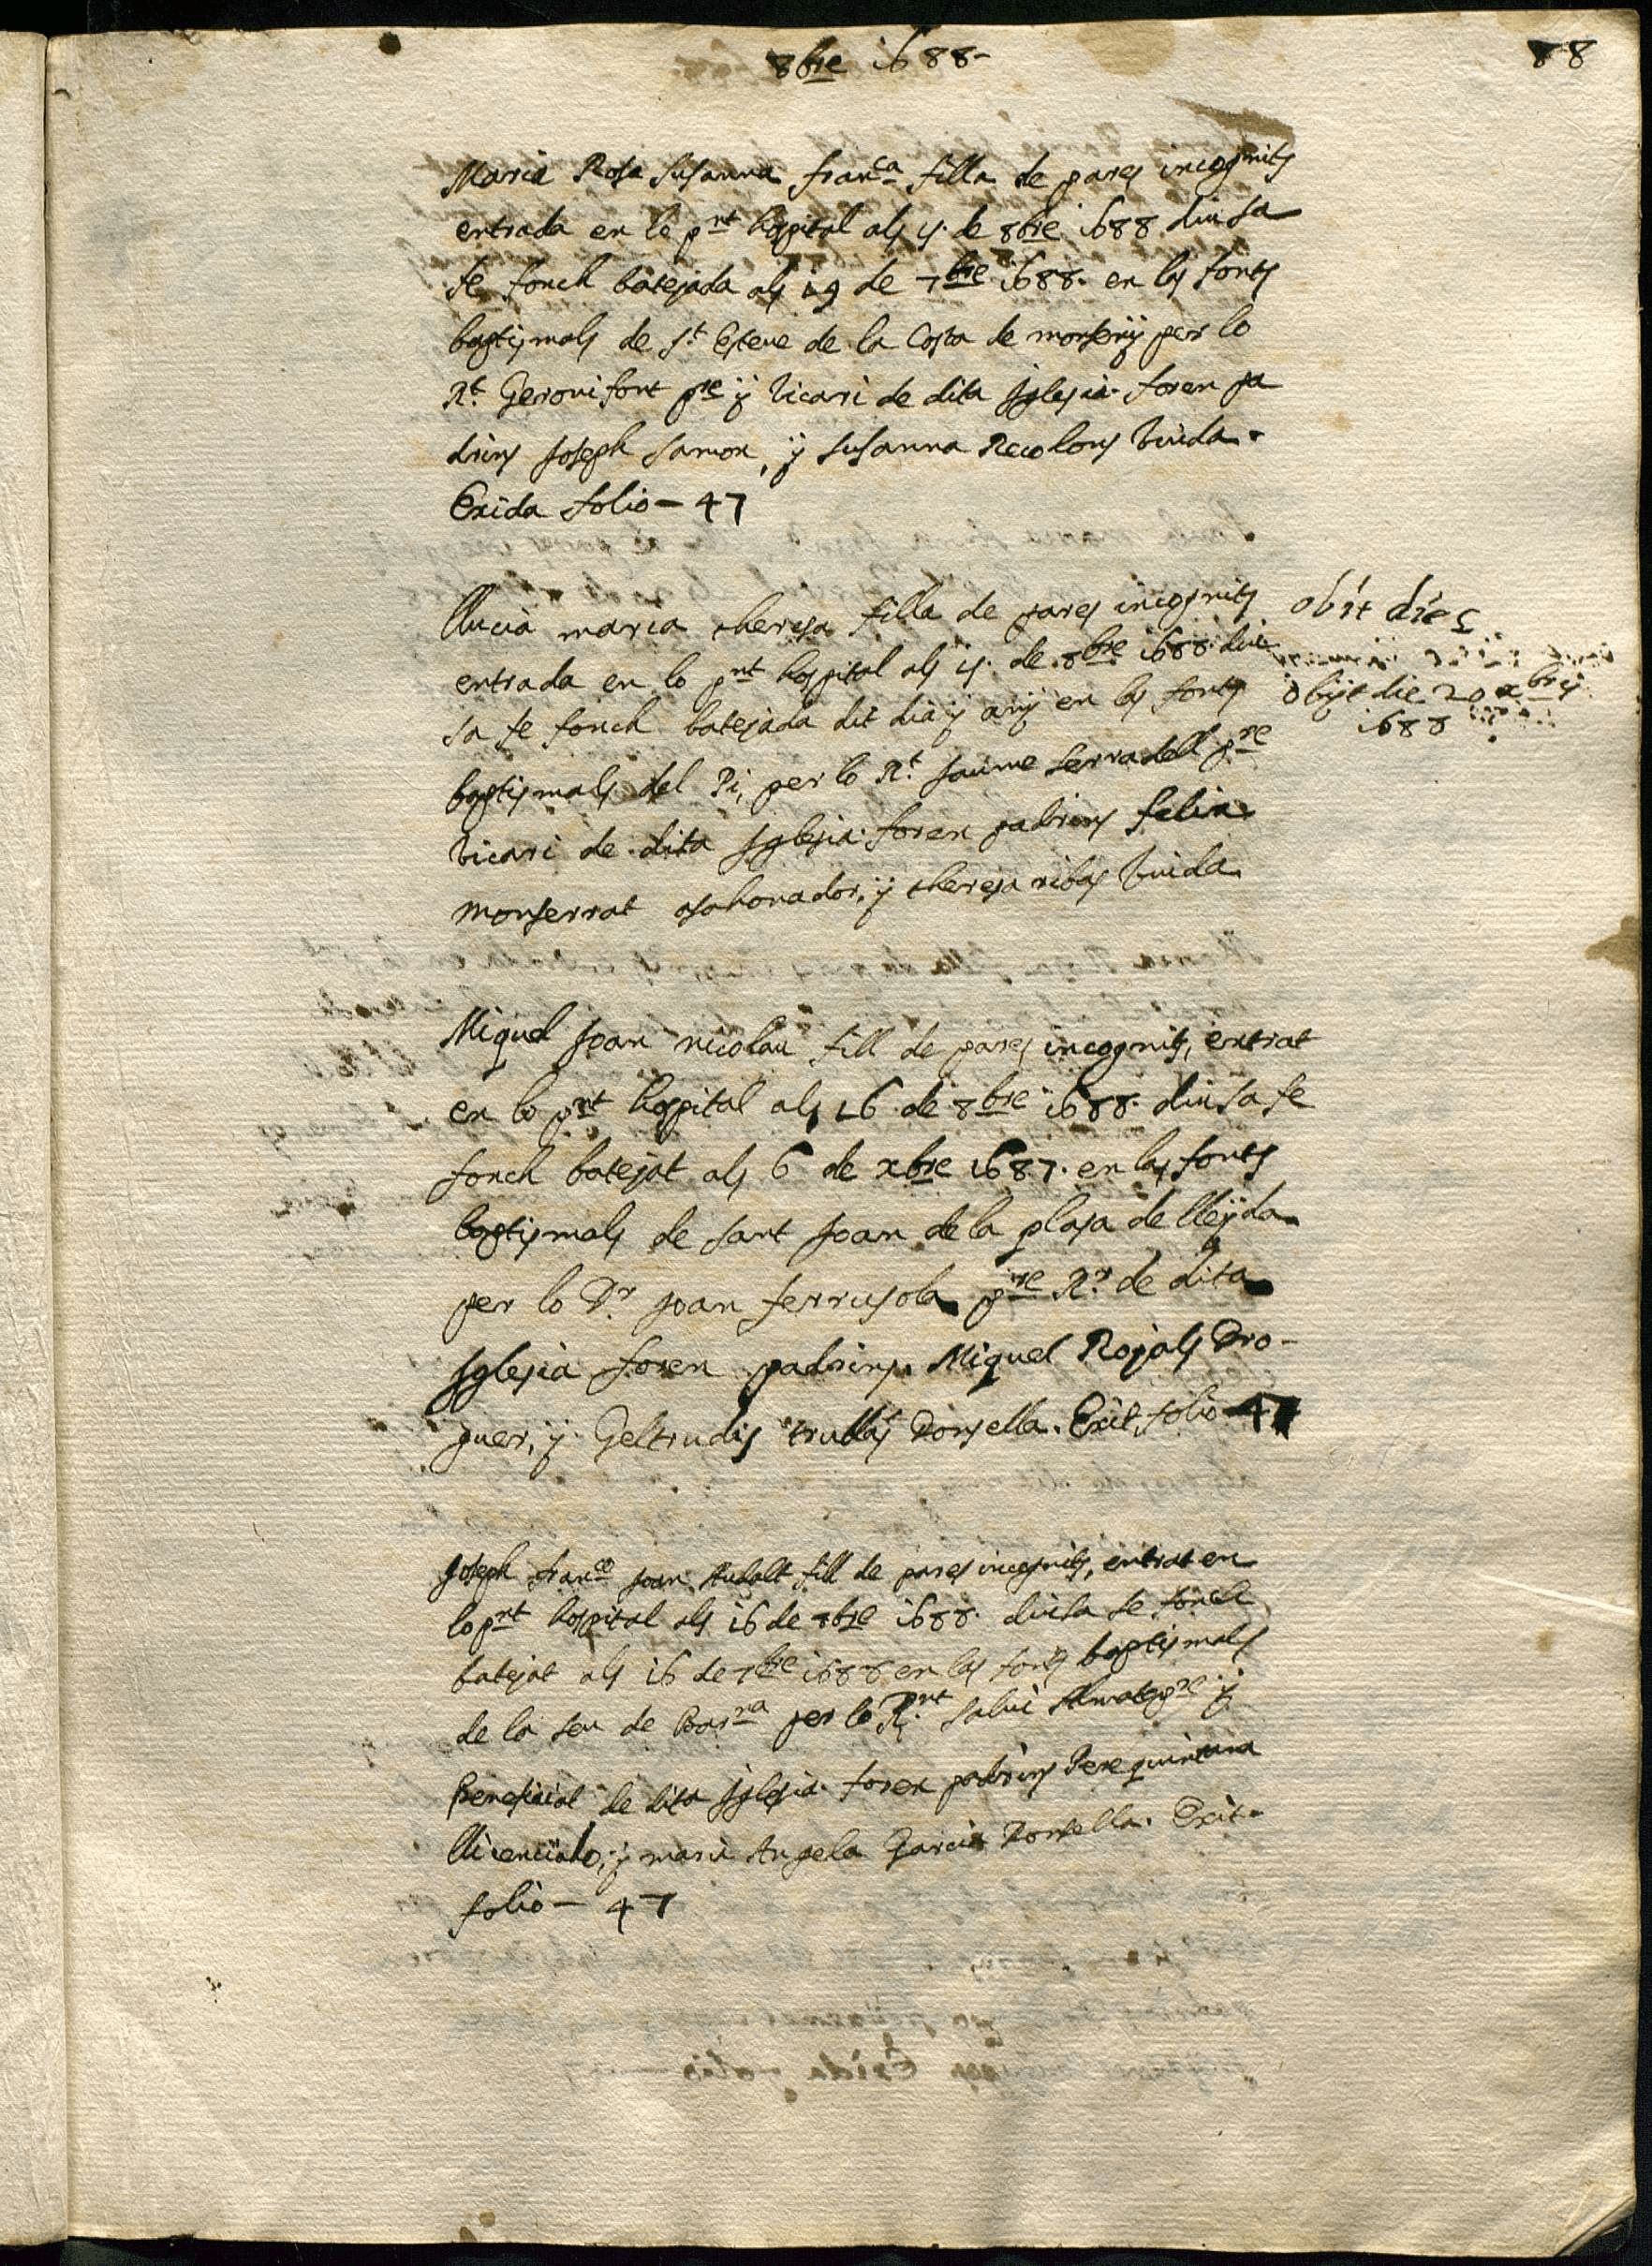 8bre 1688
88
Maria Rosa Susanna Franca filla de pares incognits
entrada en lo pnt hospital als 15 de 8bre 1688 diu sa
fe fonch batejada als 19 de 7bre 1688. en las fonts
baptismals de St Esteve de la Costa de monseny per lo
Rt. Geroni font pre y Vicari de dita Iglesia. foren pa
drins Joseph Samon, y Susanna Recolons Viuda.
Exida folio - 47
llucia maria theresa filla de pares incognits
entrada en lo pnt hospital als 15. de 8bre 1688. diu
sa fe fonch batejada dit dia y any en las fonts
baptismals del Pi, per lo Rt. Jaume Serradell pre
Vicari de dita Iglesia. foren padrins Felix
monserrat asahonador, y theresa ribas Viuda
obit dies
obijt die 20 xbris
1688
Miquel Joan nicolau fill de pares incognits, entrat
en lo pnt hospital als 16 de 8bre 1688. diu sa fe
fonch batejat als 6 de xbre 1687. en las fonts
baptismals de sant Joan de la plasa de lleyda
per lo Dr. Joan ferrusola pre Rr. de dita
Iglesia foren padrins Miquel Rojals Dro-
guer, y Geltrudis trullas Donsella. Exit folio 47
Joseph Franco Joan Audalt fill de pares incognits, entrat en
lo pnt hospital als 16 de 8bre 1688. diu sa fe fonch
batejat als 16 de 7bre 1688 en las fonts baptismals
de la seu de Barna per lo Rnt. Salvi pre y
Beneficiat de dita Iglesia. foren padrins Pere quintana
llicenciado, y maria Angela Garcia Donsella. Exit
folio - 47